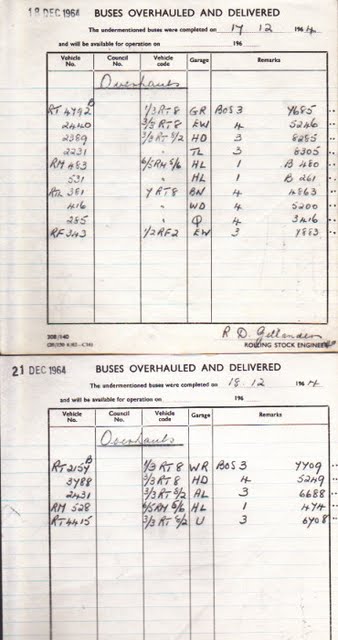 18 DEC 1964 BUSES OVERHAULED AND DELIVERED
The undermentioned buses were completed on 17 12 1964
and will be available for operation on 196
Vehicle No. Council No. Vehicle code Garage Remarks
Overhauls
RT 4792 B 1/3 RT 8 GR BOS 3 7685
2440 3/3 RT 8 EW 4 5246
2389 1/3 RT 5/2 HD 3 8285
2231 " TL 3 8305
RM 483 6/5 RM 5/6 HL 1 B 480
531 " HL 1 B 261
RTL 381 7 RT8 BN 4 4863
416 " WD 4 5200
285 " Q 4 3416
RF 343 1/2 RF2 EW 3 7883
208/140
R. D. Gellender
ROLLING STOCK ENGINEER
21 DEC 1964 BUSES OVERHAULED AND DELIVERED
The undermentioned buses were completed on 18 . 12 1964
and will be available for operation on 196
Vehicle No. Council No. Vehicle code Garage Remarks
Overhauls
RT 2154 B 1/3 RT 8 WR BOS 3 7709
3788 3/3 RT 8 HD 4 5249
2431 3/3 RT 5/2 AL 3 6688
RM 528 6/5 RM 5/6 HL 1 474
RT 4415 3/3 RT 5/2 U 3 6708